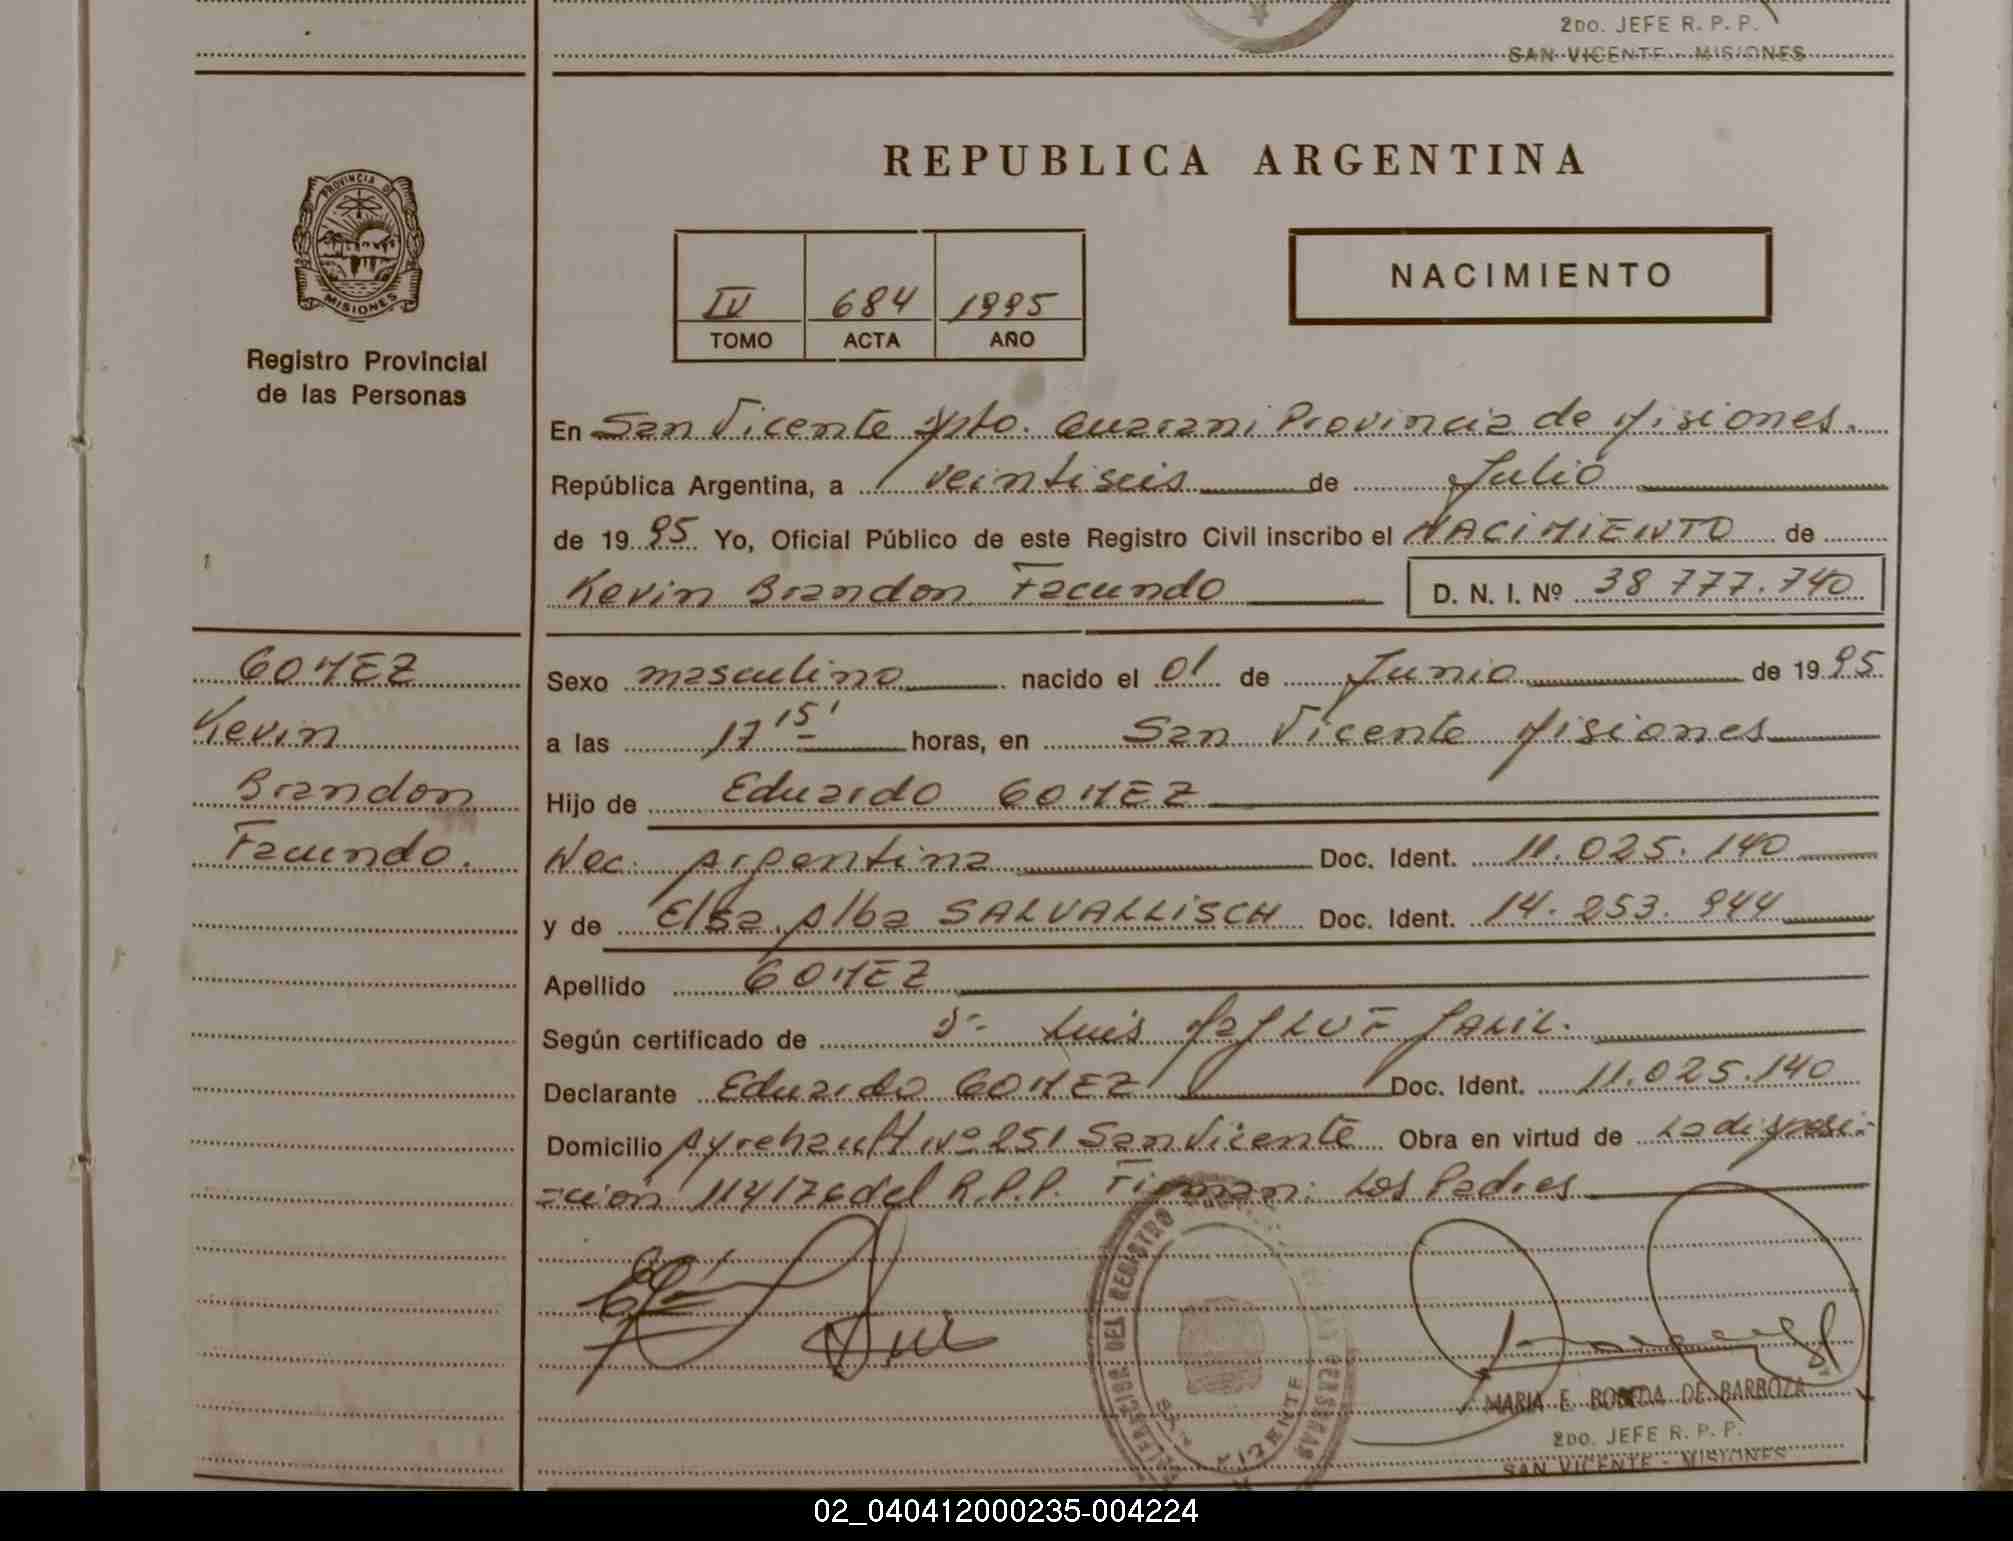 2DO. JEFE R. P. P.
SAN VICENTE - MISIONES
REPUBLICA ARGENTINA
PROVINCIA DE
MISIONES
Registro Provincial
de las Personas
IV 684 1995
TOMO ACTA AÑO
NACIMIENTO
En San Vicente Dpto. Guarani Provincia de Misiones.
República Argentina, a veintiseis de Julio
de 1995 Yo, Oficial Público de este Registro Civil inscribo el NACIMIENTO de
Kevin Brandon Facundo D. N. I. Nº 38 777.740
GOMEZ
Kevin
Brandon
Facundo.
Sexo masculino nacido el 01 de Junio de 1995.
a las 17 15' horas, en San Vicente Misiones
Hijo de Eduardo GOMEZ
Nac. Argentina Doc. Ident. 11.025.140
y de Elsa Alba SALVALLISCH Doc. Ident. 14.253.944
Apellido GOMEZ
Según certificado de Dr. Luis JALIL.
Declarante Eduardo GOMEZ Doc. Ident. 11.025.140
Domicilio Nº 251 San Vicente Obra en virtud de La disposi-
ción 114/76 del R.P.P. Firman: Los Padres
DEL REGISTRO
VICENTE
MARIA E. DE BARBOZA
2DO. JEFE R. P. P.
SAN VICENTE - MISIONES
02_040412000235-004224